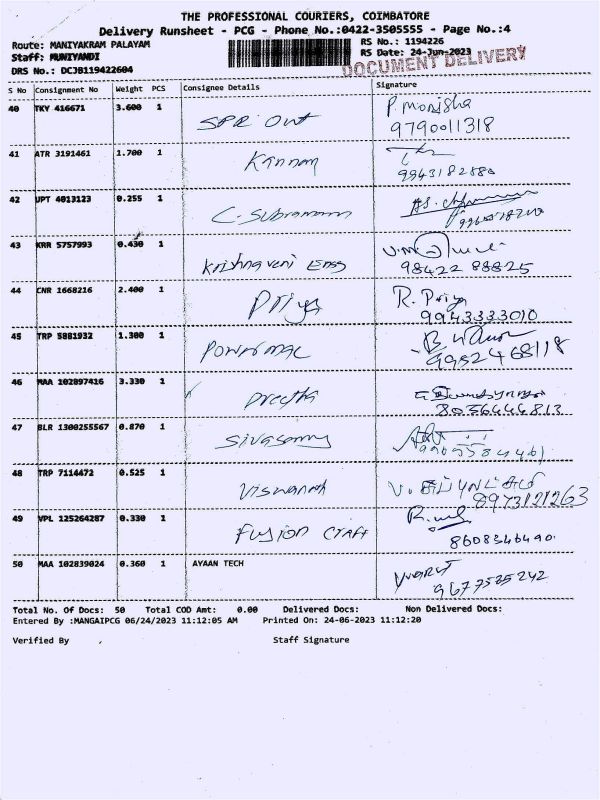 THE PROFESSIONAL COURIERS, COIMBATORE
Delivery Runsheet - PCG - Phone No.:0422-3505555 - Page No.:4
Route: MANIYAKRAM PALAYAM RS No.: 1194226
Staff: MUNIYANDI RS Date: 24-Jun-2023
DOCUMENT DELIVERY
DRS No.: DCJB119422604
S No Consignment No Weight PCS Consignee Details Signature
40 TKY 416671 3.600 1 SPR Out P. Monisha
9790011318
41 ATR 3191461 1.700 1 Kannan
9943182880
42 UPT 4013123 0.255 1 C. Subramani
43 KRR 5757993 0.430 1 Krishnaveni Engg
98422 88825
44 CNR 1668216 2.400 1 Priya R. Priya
9943333010
45 TRP 5881932 1.300 1 Powermac
9952468118
46 MAA 102897416 3.330 1 Preetha
8056444813
47 BLR 1300255567 0.870 1 Sivasamy
48 TRP 7114472 0.525 1 Viswanath
8973121263
49 VPL 125264287 0.330 1 Fusion Craft
8608346490
50 MAA 102839024 0.360 1 AYAAN TECH
9677535242
Total No. Of Docs: 50 Total COD Amt: 0.00 Delivered Docs: Non Delivered Docs:
Entered By :MANGAIPCG 06/24/2023 11:12:05 AM Printed On: 24-06-2023 11:12:20
Verified By Staff Signature